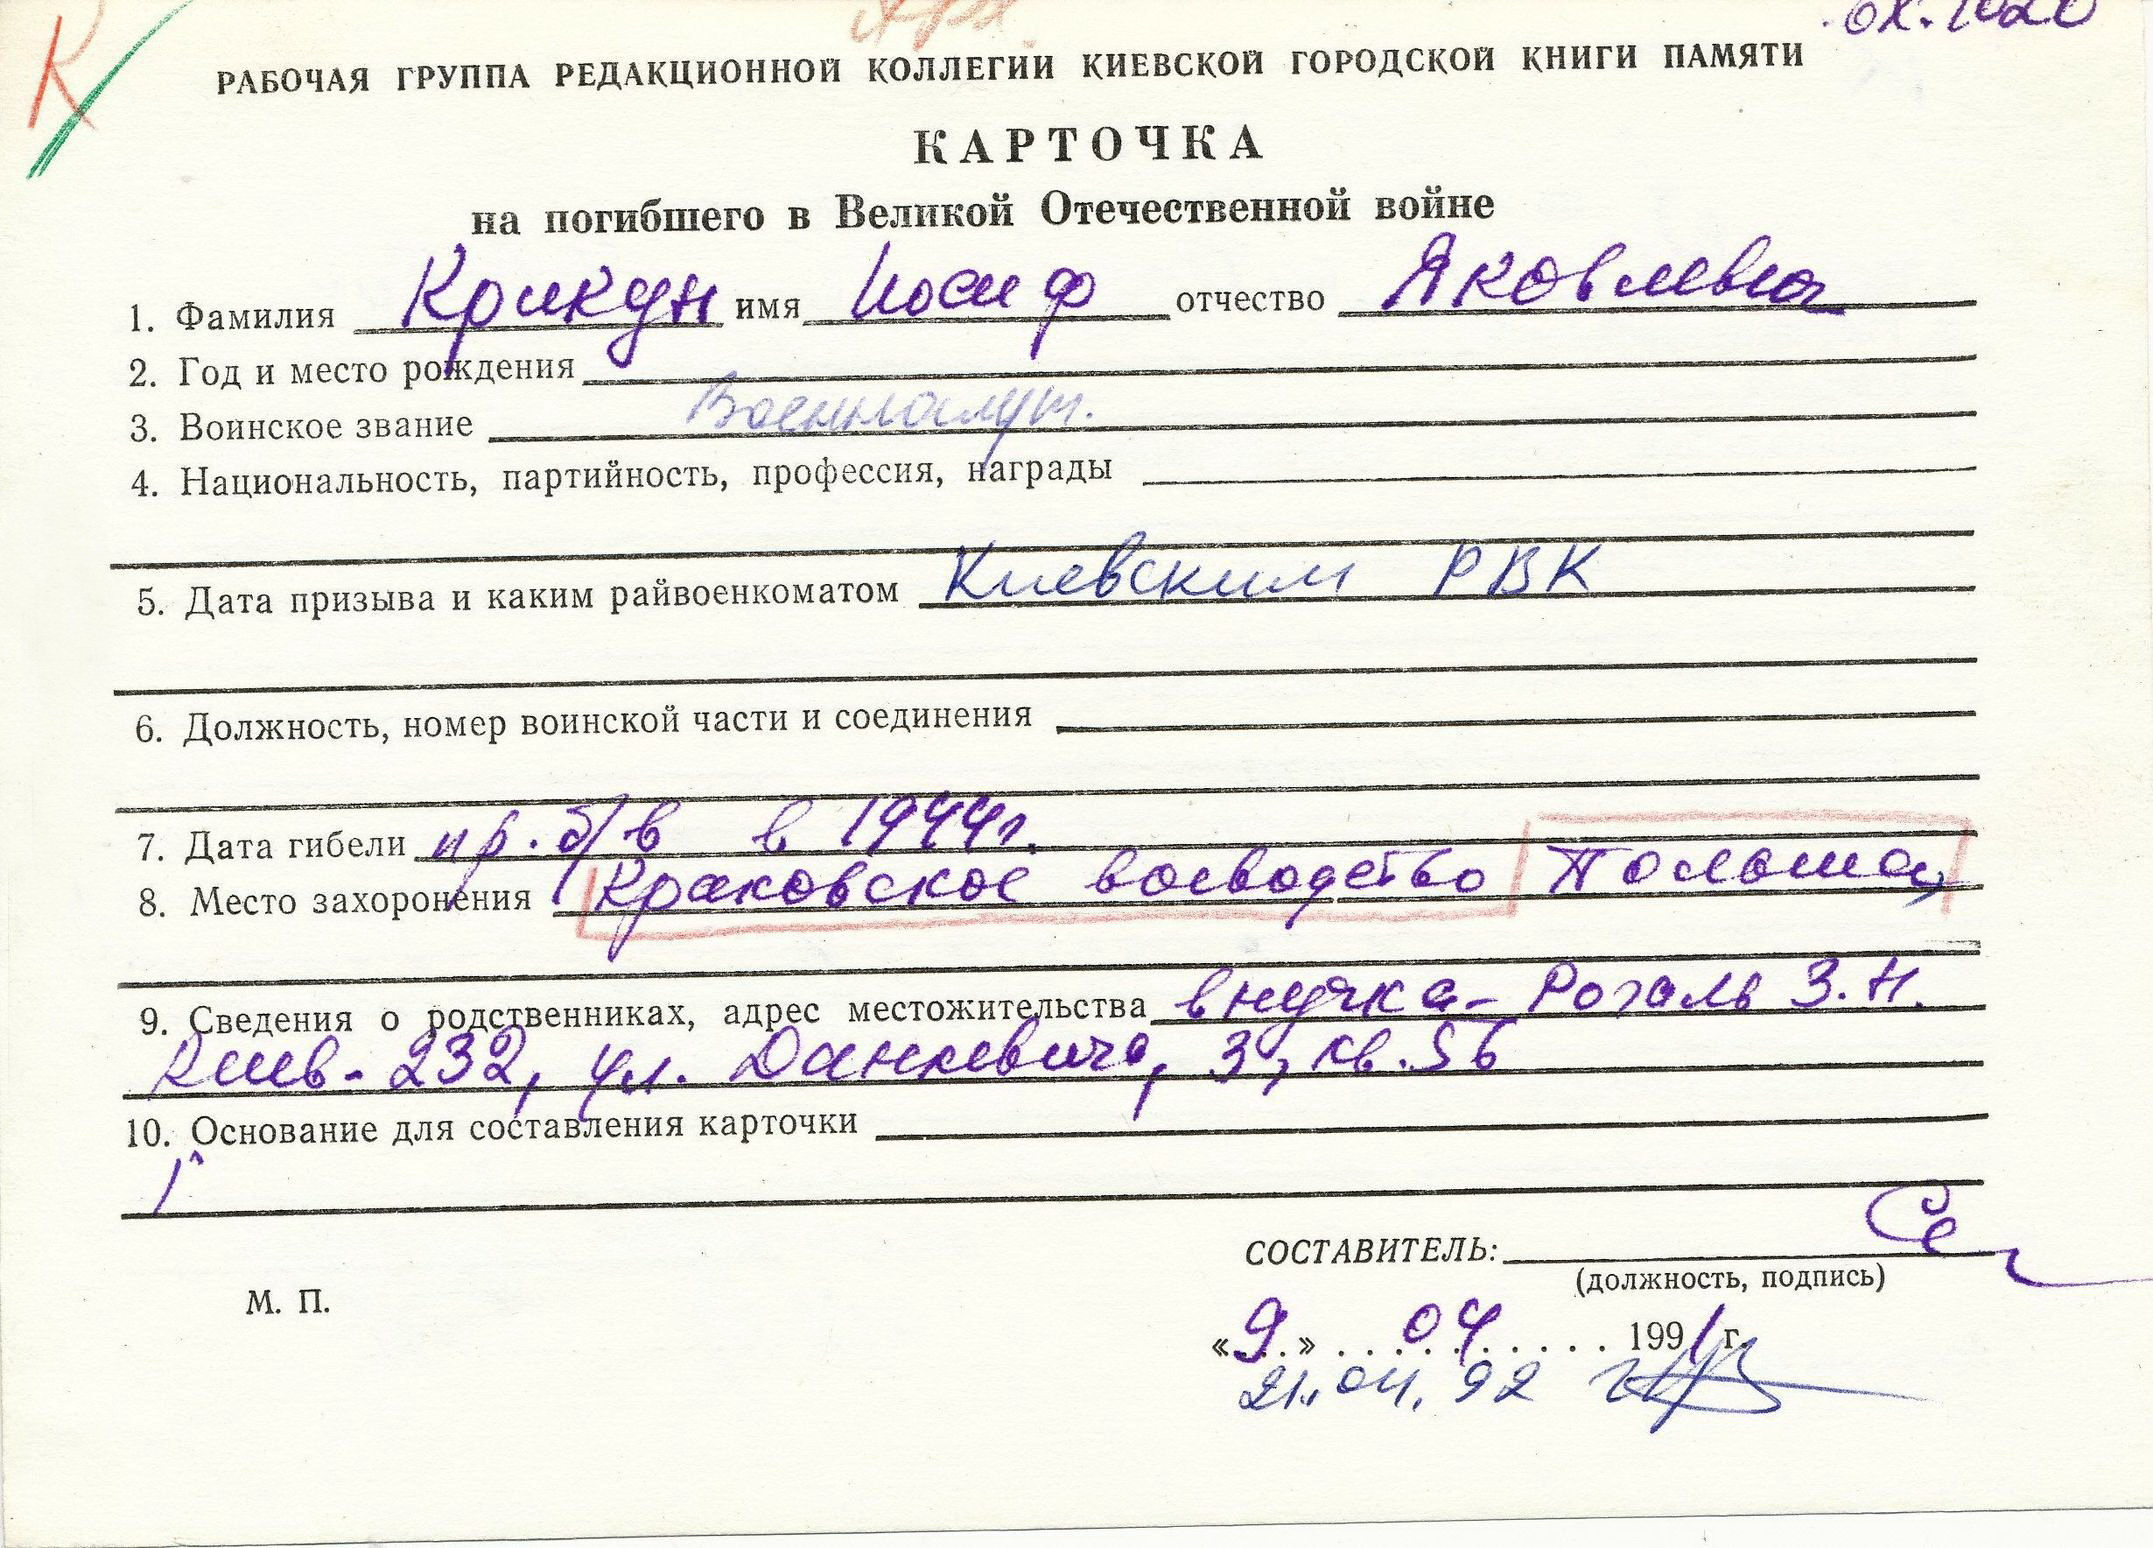 вх. 1020
РАБОЧАЯ ГРУППА РЕДАКЦИОННОЙ КОЛЛЕГИИ КИЕВСКОЙ ГОРОДСКОЙ КНИГИ ПАМЯТИ
КАРТОЧКА
на погибшего в Великой Отечественной войне
1. Фамилия Крикун имя Иосиф отчество Яковлевич
2. Год и место рождения
3. Воинское звание Военнослуж.
4. Национальность, партийность, профессия, награды
5. Дата призыва и каким райвоенкоматом Киевским РВК
6. Должность, номер воинской части и соединения
7. Дата гибели пр. б/в в 1944г.
8. Место захоронения Краковское воеводство Польша,
9. Сведения о родственниках, адрес местожительства внучка - Рогаль З. Н.
Киев - 232, ул. Данкевича, 3, кв. 56
10. Основание для составления карточки
СОСТАВИТЕЛЬ:
(должность, подпись)
М. П.
«9» 04 1991 г.
21.04.92